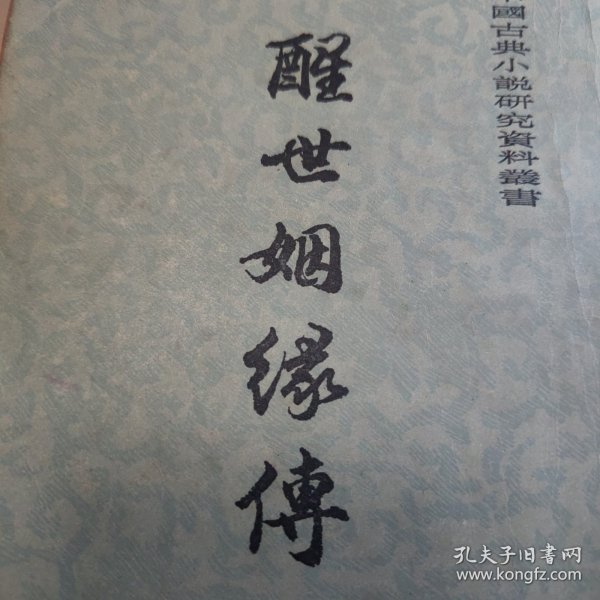 國古典小說研究資料叢書
醒世姻緣傳
孔夫子旧书网
www.kongfz.com